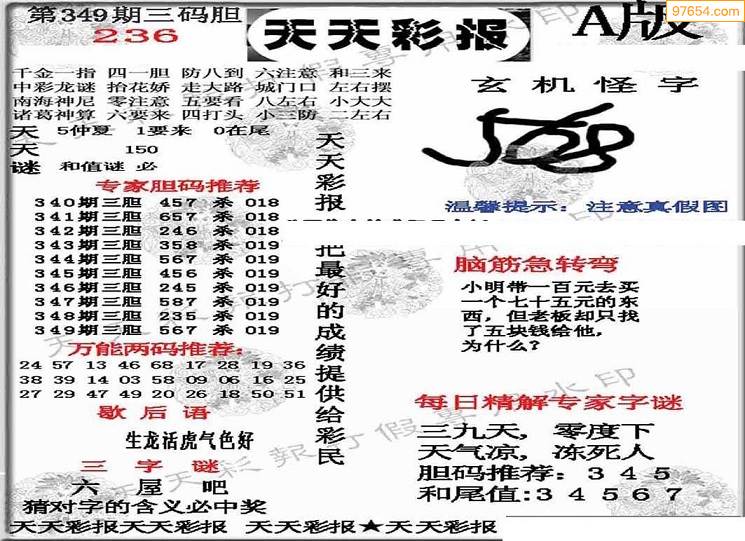 第349期三码胆
236
天天彩报
A版
97654.com
千金一指 四一胆 防八到 六注意 和三来
中彩龙谜 抬花娇 走大路 城门口 左右摆
南海神尼 零注意 五要看 八左右 小大大
诸葛神算 六要来 四打头 小三防 二左右
天 5仲夏 1要来 0在尾
天 150
谜 和值谜 必
专家胆码推荐
340期三胆 457 杀 018
341期三胆 657 杀 018
342期三胆 246 杀 018
343期三胆 358 杀 019
344期三胆 567 杀 019
345期三胆 456 杀 019
346期三胆 245 杀 019
347期三胆 587 杀 019
348期三胆 235 杀 019
349期三胆 567 杀 019
万能两码推荐:
24 57 13 46 68 17 28 19 36
38 39 14 03 58 09 06 16 25
27 29 47 49 20 26 18 50 51
歇后语
生龙活虎气色好
三字谜
六 屋 吧
猜对字的含义必中奖
天天彩报
把最好的成绩提供给彩民
玄机怪字
温馨提示: 注意真假图
脑筋急转弯
小明带一百元去买
一个七十五元的东
西,但老板却只找
了五块钱给他,
为什么?
每日精解专家字谜
三九天, 零度下
天气凉, 冻死人
胆码推荐: 3 4 5
和尾值:3 4 5 6 7
天天彩报天天彩报 天天彩报★天天彩报